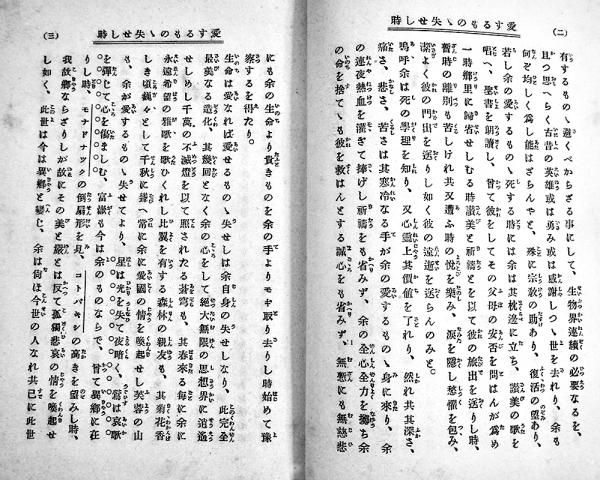 愛するものゝ失せし時
(二)
有するものゝ避くべからざる事にして、生物界連續の必要なるを、
且つ思へらく古昔の英雄或は勇み或は感謝しつゝ世を去れり、余も
何ぞ均しく爲し能はざらんやと、殊に宗敎の助あり、復活の望あり、
若し余の愛するものゝ死する時には余は其枕邊に立ち、讃美の歌を
唱へ、聖書を朗讀し、曾て彼をして其父母の安否を問はんが爲め
一時鄕里に歸省せしむる時讃美と祈禱とを以て彼の旅出を送りし時、
暫時の離別も苦しけれ共又遭ふ時の悅を樂み、涙を隱し愁懼を包み、
潔よく彼の門出を送りし如く彼の遠逝を送らんのみと。
嗚呼余は死の學理を知り、又心靈上其價値を了れり、然れ共其深さ、
痛さ、悲さ、苦さは其寒冷なる手が余の愛するものゝ身に來り、余
の連夜熱血を灌ぎて捧げし祈禱をも省みず、余の全心全力を擲ち余
の命を捨てゝも彼を救はんとする誠心をも省みず、無慙にも無慈悲
愛するものゝ失せし時
(三)
にも余の生命より貴きものを余の手よりモギ取り去りし時始めて豫
察するを得たり。
生命は愛なれば愛するものゝ失せしは余自身の失せしなり、此完全
最美なる造化、其幾回となく余の心をして絕大無限の思想界に逍遙
せしめし千萬の不滅燈を以て照されたる蒼穹も、其春來る每に余に
永遠希望の雅歌を歌ひくれし比翼を有する森林の親友も、其菊花香
しき頃巍々として千秋に聳へ常に余に愛國の情を喚起せし芙蓉の山
も、余が愛するものゝ失せてより、星は光を失て夜暗く、鶯は哀歌
を彈じて心を傷ましむ、富嶽も今は余のものならで、曾て異鄕に在
りし時、モナドナックの倒扇形を見、コトパキシの高きを望みし時、
我故鄕ならざりしが故にその美と嚴とは反て孤獨悲哀の情を喚起せ
し如く、此世は今は異鄕と變じ、余は尙ほ今世の人なれ共已に此世